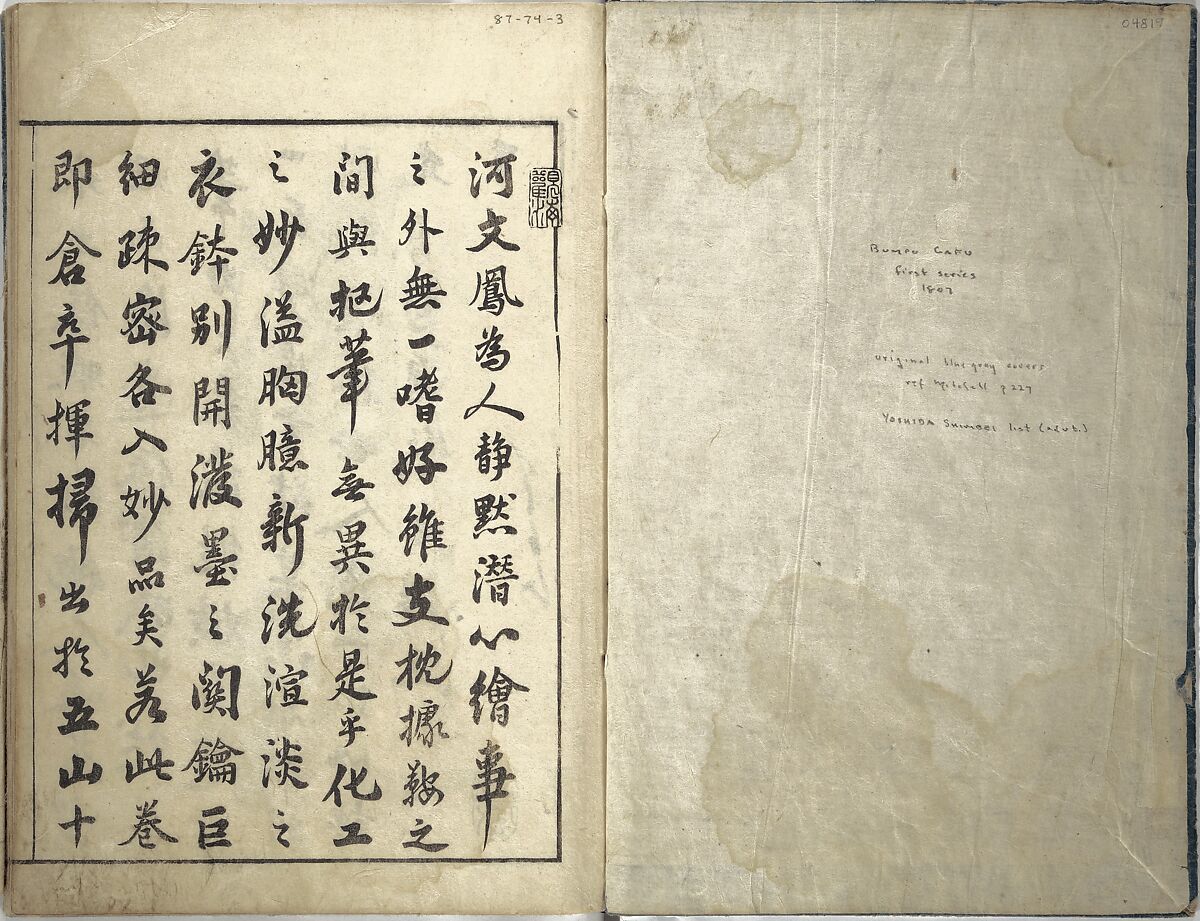 87-74-3
04819
Bumpo Gafu
first series
1807
original blue-gray covers
ref Mitchell p 227
YOSHIDA
list
河文鳳為人静默潛心繪事
之外無一嗜好雖支枕據鞍之
間與把筆無異於是乎化工
之妙溢胸臆新洗渲淡之
衣鉢別開潑墨之関鑰巨
細疎密各入妙品矣若此巻
即倉卒揮掃出於五山十